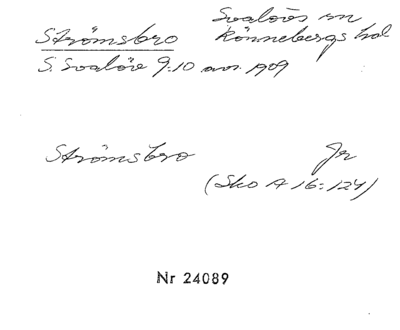 Strömsbro
Svalövs sn
Rönnebergs hd
S. Svalöv 9:10 avs. 1909
Strömsbro
Jr
(Sko A 16:124)
Nr 24089